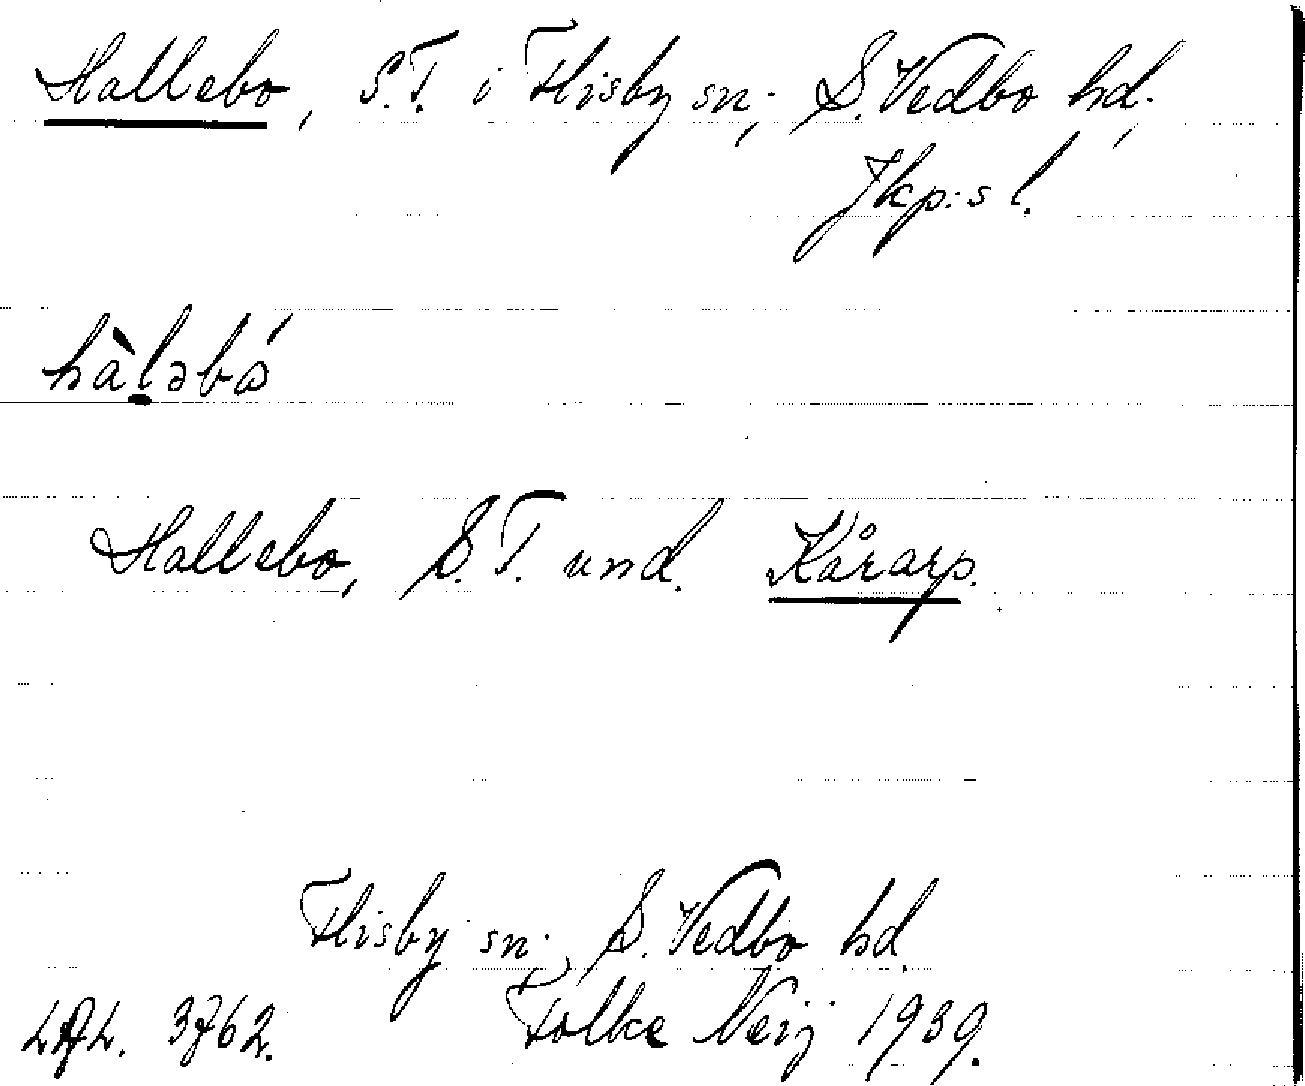 Hallebo, S.T. i Flisby sn., S. Vedbo hd.,
Jkp:s l.
hàləbó
Hallebo, S.T. und. Kårarp.
Flisby sn., S. Vedbo hd.
Folke Neij 1939.
LAL. 3762.